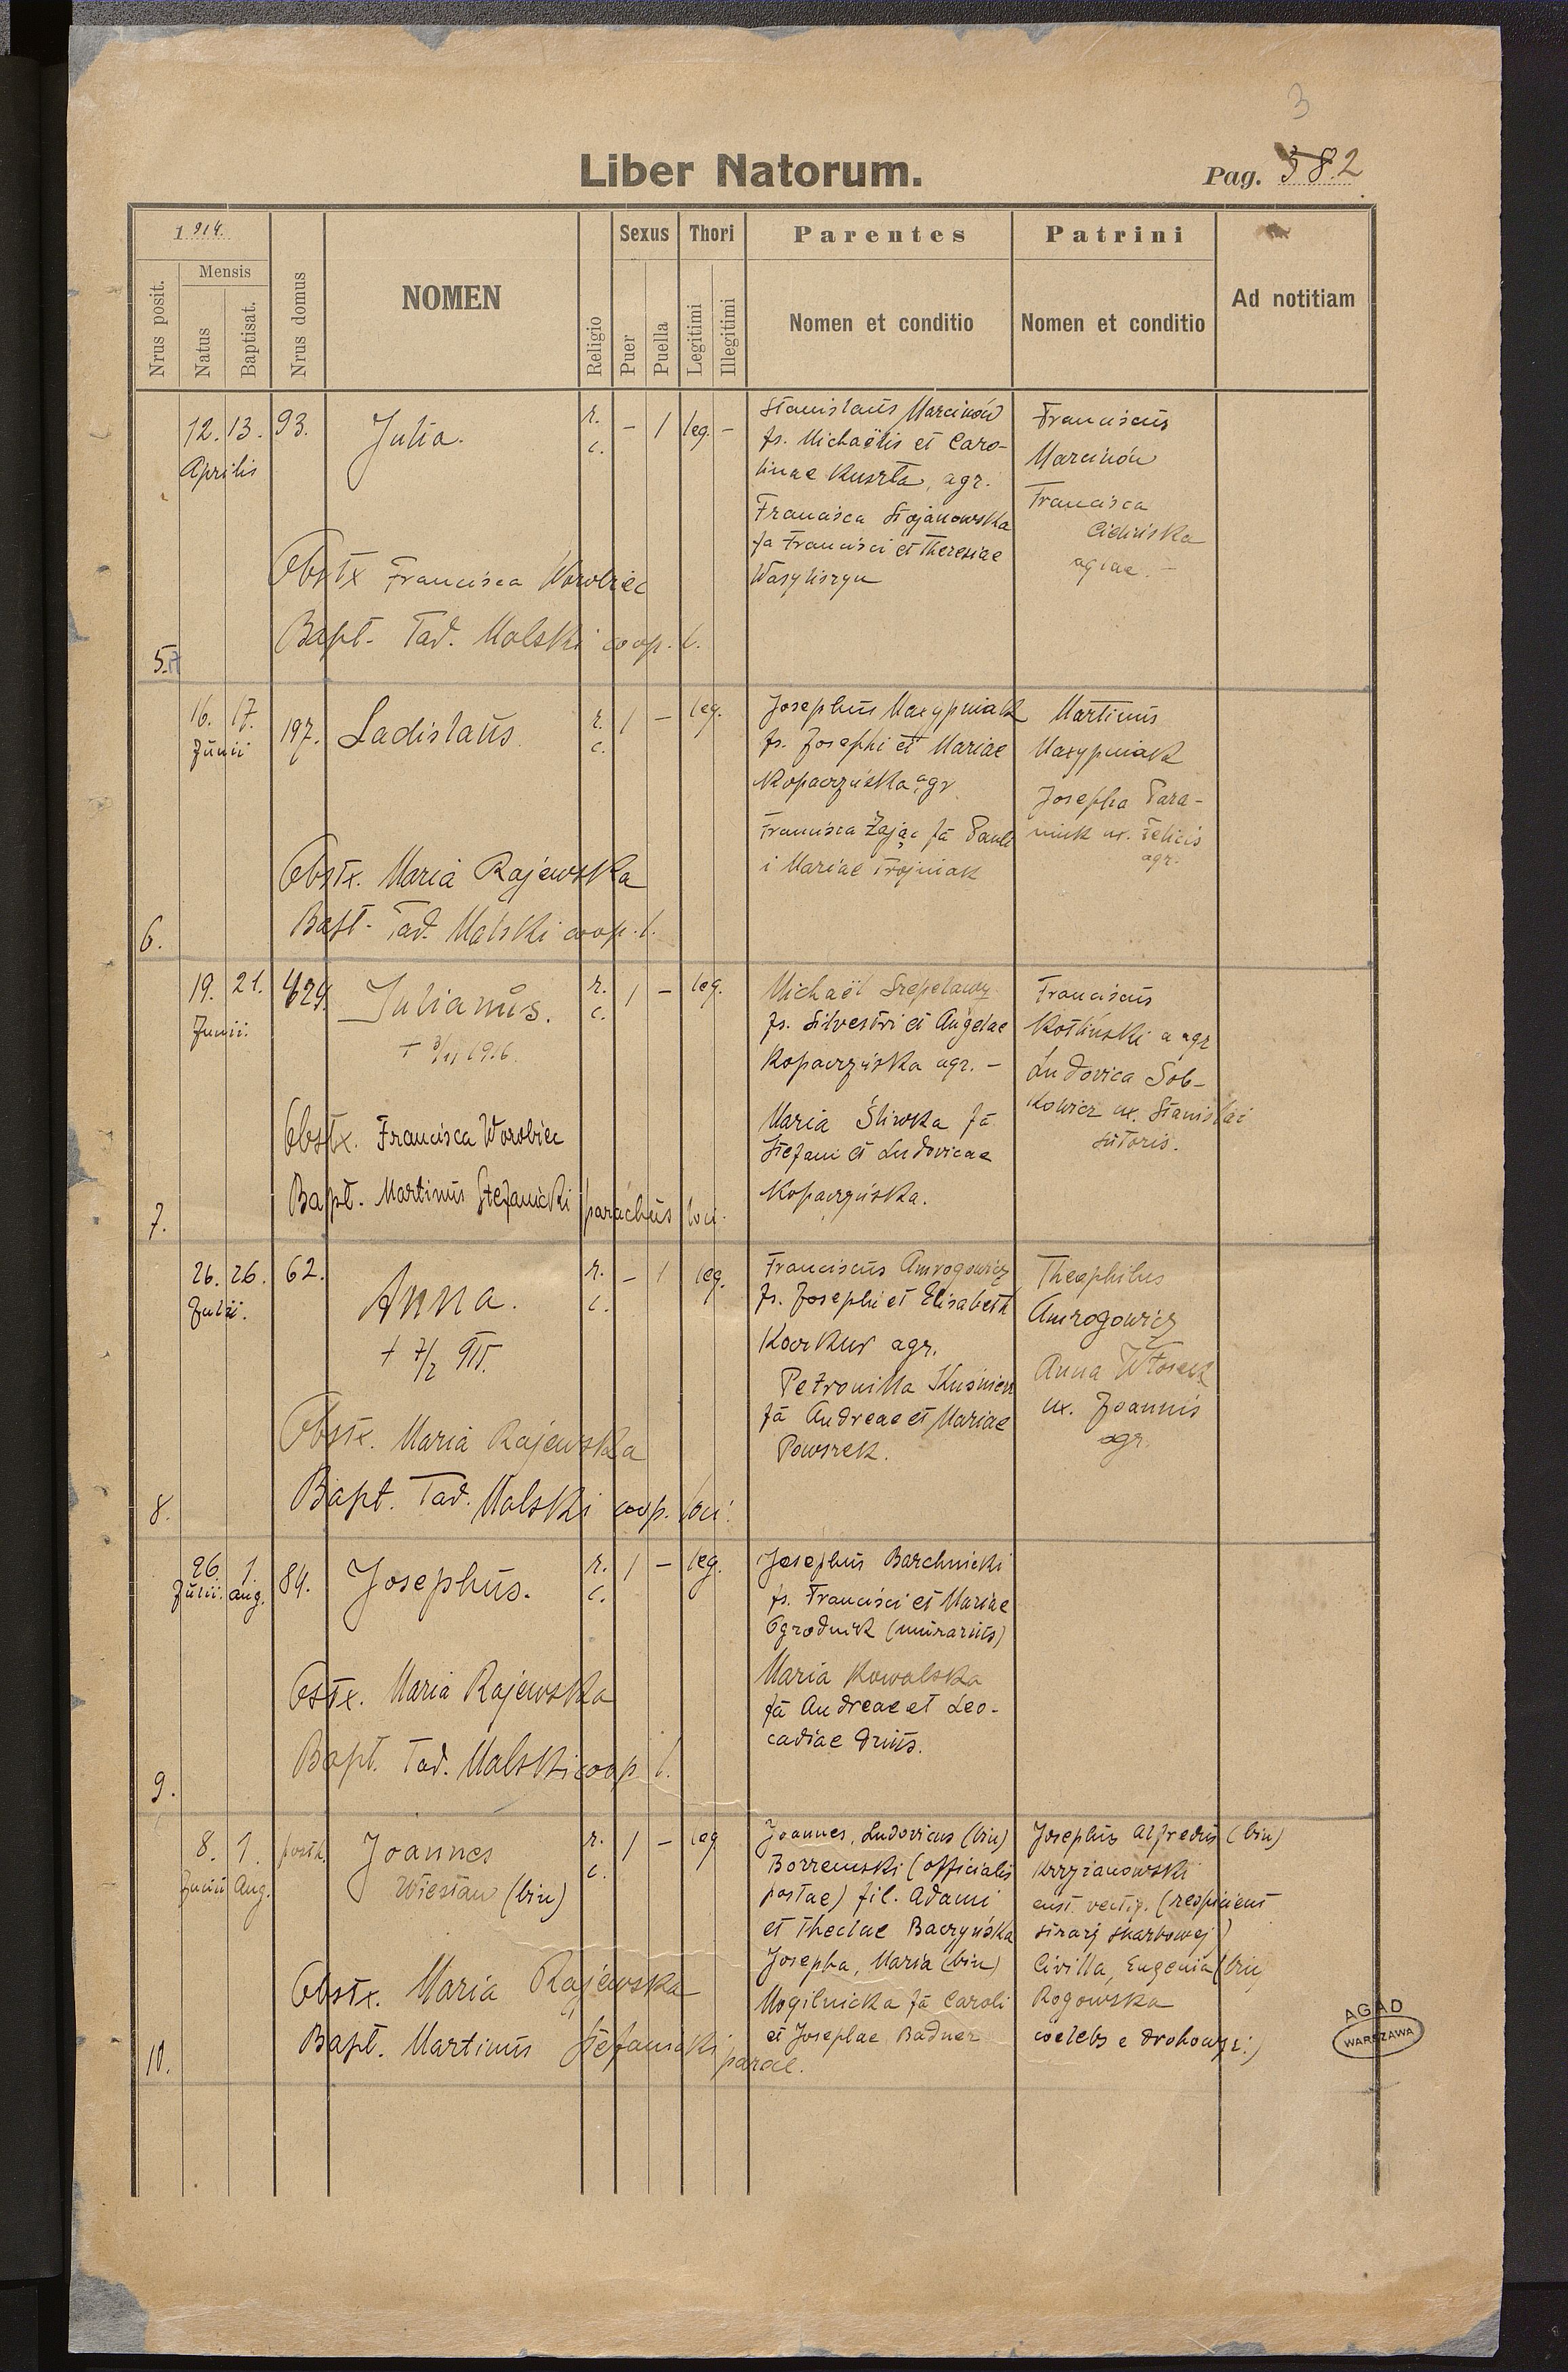 3
Liber Natorum.
Pag. 382
1914.
Nrus posit.
Mensis
Natus
Baptisat.
Nrus domus
NOMEN
Religio
Sexus
Puer
Puella
Thori
Legitimi
Illegitimi
Parentes
Nomen et conditio
Patrini
Nomen et conditio
Ad notitiam
5.
12. 13. 93. Julia. r. c. – 1 leg. –
Aprilis
Stanislaus Marcinów
fs. Michaëlis et Caro-
linae Kuszta, agr.
Francisca Stojanowska
fa Francisci et Theresiae
Wasyliszyn
Franciscus
Marcinów
Francisca
agrae. –
Obstx Francisca Worobiec
Bapt. Tad. Malski coop. l.
6.
16. 17. 197. Ladislaus r. c. 1 – leg.
Junii
Josephus Maxypniak
fs. Josephi et Mariae
Kopaczińska agr
Francisca Zając fa Pauli
i Mariae Trojniak
Martinus
Maxypniak
Josepha Para-
niuk ux. Felicis
agr.
Obstx. Maria Rajewska
Bapt. Tad. Malski coop. l.
7.
19. 21. 429. Julianus. r. c. 1 – leg.
Junii.
+ 3/11 1916.
Michaël Szepelawy
fs. Silvestri et Angelae
Kopaczyńska agr. –
Maria Śliwka fa
Stefani et Ludovicae
Kopaczyńska.
Franciscus
Kotliński a agr
Ludovica Sob-
kowicz ux. Stanislai
sutoris.
Obstx. Francisca Worobiec
Bapt. Martinus Stefanicki parochus loci.
8.
26. 26. 62. Anna. r. c. – 1 leg.
Julii.
+ 7/2 915.
Franciscus Amrogowicz
fs. Josephi et Elisabeth
agr.
Petronilla Kuśnierz
fa Andreae et Mariae
Powsrek.
Theophilus
Amrogowicz
Anna Włosek
ux. Joannis
agr.
Obstx. Maria Rajewska
Bapt. Tad. Malski coop. loci.
9.
26. 1. 84. Josephus. r. c. 1 – leg.
Julii. aug.
Josephus Barchnicki
fs. Francisci et Mariae
Ogrodnik (murarius)
Maria Kowalska
fa Andreae et Leo-
cadiae Druś.
Obstx. Maria Rajewska
Bapt. Tad. Malski coop l.
10.
8. 1. Joannes r. c. 1 – leg
Junii Aug. Wiesław (bin)
Joannes, Ludovicus (bin)
Borremski (officialis
postae) fil. Adami
et Theclae Baczyńska
Josepha, Maria (bin)
Mogilnicka fa Caroli
et Josephae Badner
Josephus Alfredus (bin)
Krzyżanowski
cust. vectig. (respicient
straży skarbowej)
Civilla, Eugenia (bin)
Rogowska
coelebs e
Obstx. Maria Rajewska
Bapt. Martinus Stefanicki paroc.
AGAD
WARSZAWA